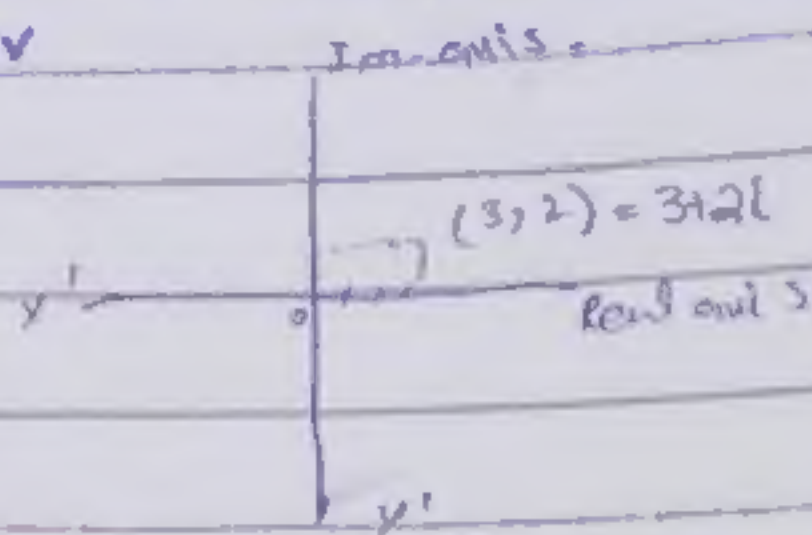 Im-axis.
(3, 2) = 3+2i
y'
o
Real axis
y'